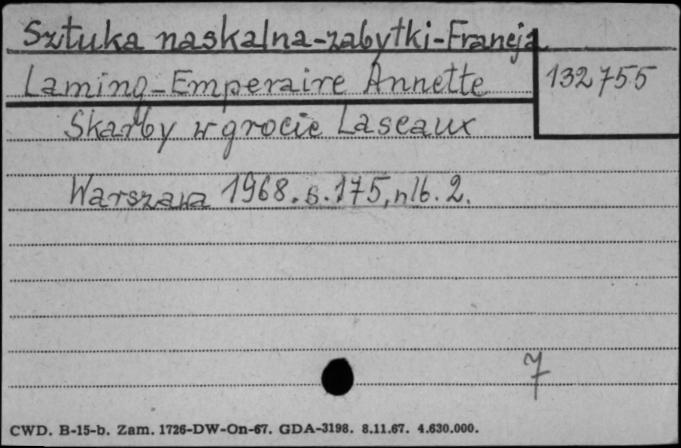 Sztuka naskalna-zabytki-Francja
Laming-Emperaire Annette
132755
Skarby w grocie Lascaux
Warszawa 1968. s. 175, nlb. 2.
7
CWD. B-15-b. Zam. 1726-DW-On-67. GDA-3198. 8.11.67. 4.630.000.